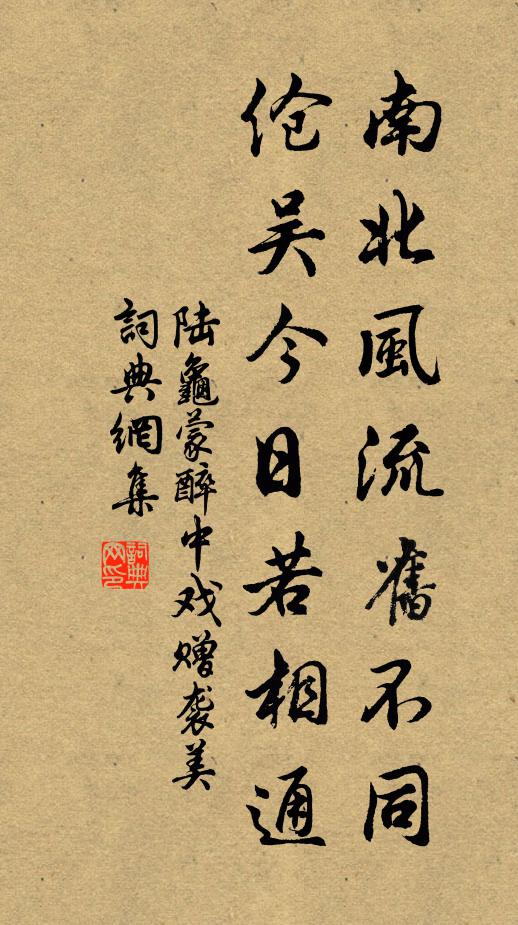 南北風流舊不同
伧吴今日若相通
陆龜蒙醉中戏赠袭美
詞典網集
詞典网印